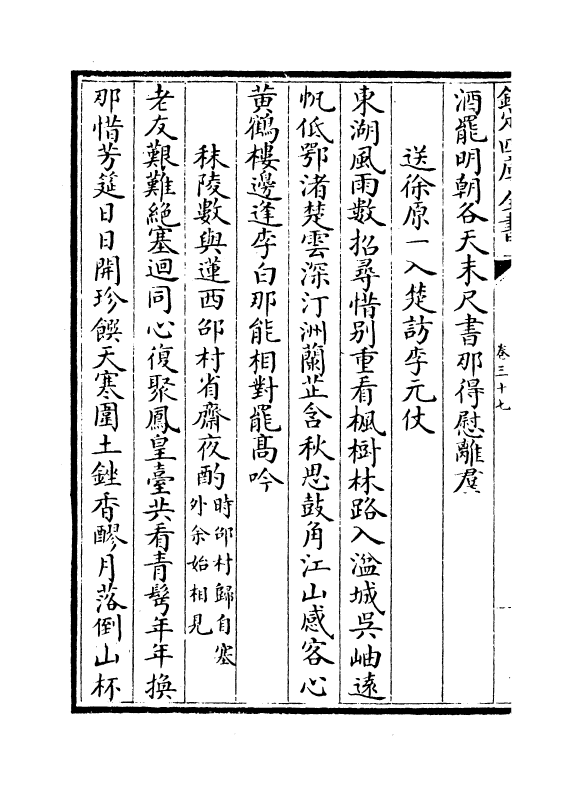 欽定四庫全書
卷三十七
酒罷明朝各天末尺書那得慰離羣
送徐原一入楚訪李元仗
東湖風雨數招尋惜别重看楓樹林路入湓城吳岫遠
帆低鄂渚楚雲深汀洲蘭芷含秋思鼓角江山感客心
黄鶴樓邊逢李白那能相對罷髙吟
秣陵數與蓮西邵村省齋夜酌時邵村歸自塞
外余始相見
老友艱難絶塞迴同心復聚鳳皇臺共看青鬢年年換
那惜芳筵日日開珍饌天寒圍土銼香醪月落倒山杯